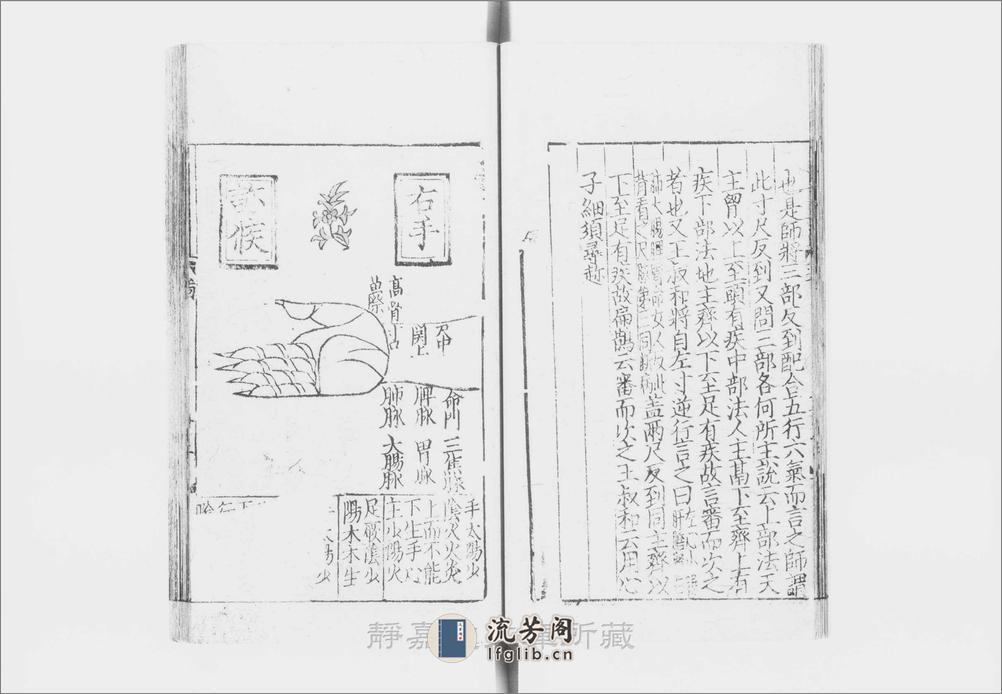 也是師將三部反到配合五行六氣而言之師謂
此寸尺反到又問三部各何所主說云上部法天
主胷以上至頭有疾中部法人主鬲下至齊上有
疾下部法地主齊以下至足有疾故言審而次之
者也又王叔和將自左寸逆行言之曰
盖兩尺反到同主齊以
下至足有疾故扁鵲云審而次之王叔和云用心
子細須尋趂
右手
診候
高骨
尺中
關上
命門
三焦脉
脾脉
胃脉
肺脉
大腸脉
手太陽少
陰火火炎
上而不能
下生手心
主少陽火
足厥陰少
陽木木生
靜嘉堂文庫所藏
流芳阁
lfglib.cn